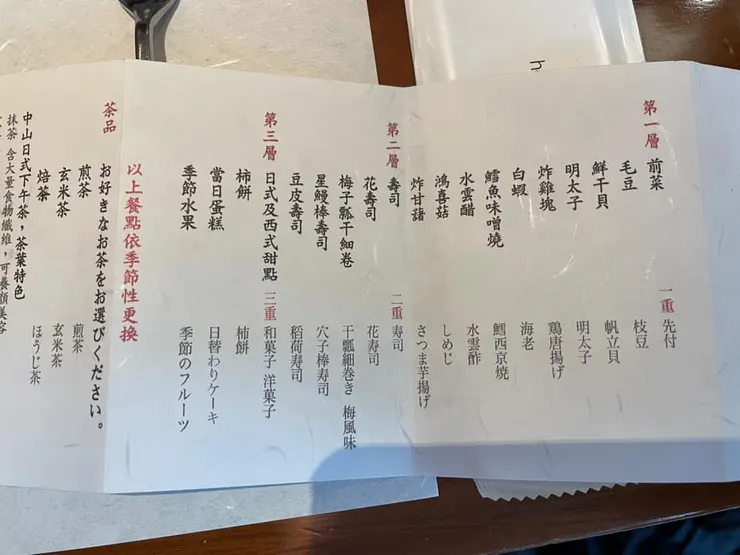 第一層 前菜 一重 先付
毛豆 枝豆
鮮干貝 帆立貝
明太子 明太子
炸雞塊 鶏唐揚げ
白蝦 海老
鱈魚味噌燒 鱈西京焼
水雲醋 水雲酢
鴻喜菇 しめじ
炸甘藷 さつま芋揚げ
第二層 壽司 二重 寿司
花壽司 花寿司
梅子瓢干細卷 干瓢細巻き 梅風味
星鰻棒壽司 穴子棒寿司
豆皮壽司 稲荷寿司
第三層 日式及西式甜點 三重 和菓子 洋菓子
柿餅 柿餅
當日蛋糕 日替わりケーキ
季節水果 季節のフルーツ
以上餐點依季節性更換
茶品 お好きなお茶をお選びください。
煎茶 煎茶
玄米茶 玄米茶
焙茶 ほうじ茶
中山日式下午茶，茶葉特色
抹茶 含大量食物纖維，可養顏美容